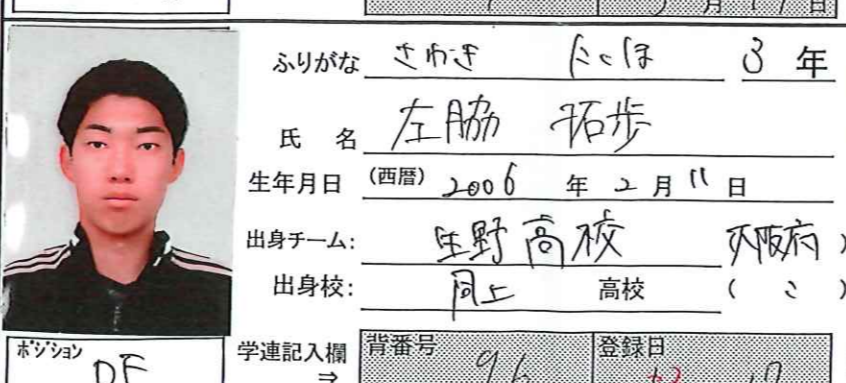 月 19 日
ふりがな さわき たくほ 3 年
氏 名 左脇 拓歩
生年月日 (西暦) 2006 年 2 月 11 日
出身チーム: 生野高校 大阪府 )
出身校: 同上 高校 ( 〃 )
ポジション DF
学連記入欄 ⇒ 背番号 96 登録日